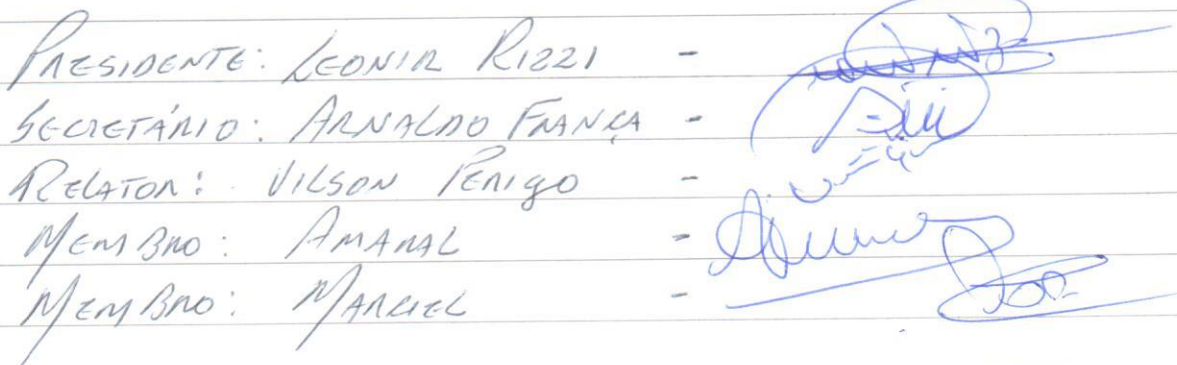 PRESIDENTE: LEONIR RIZZI -
SECRETÁRIO: ARNALDO FRANÇA -
RELATOR: VILSON PERIGO -
MEMBRO: AMARAL -
MEMBRO: MARCIEL -